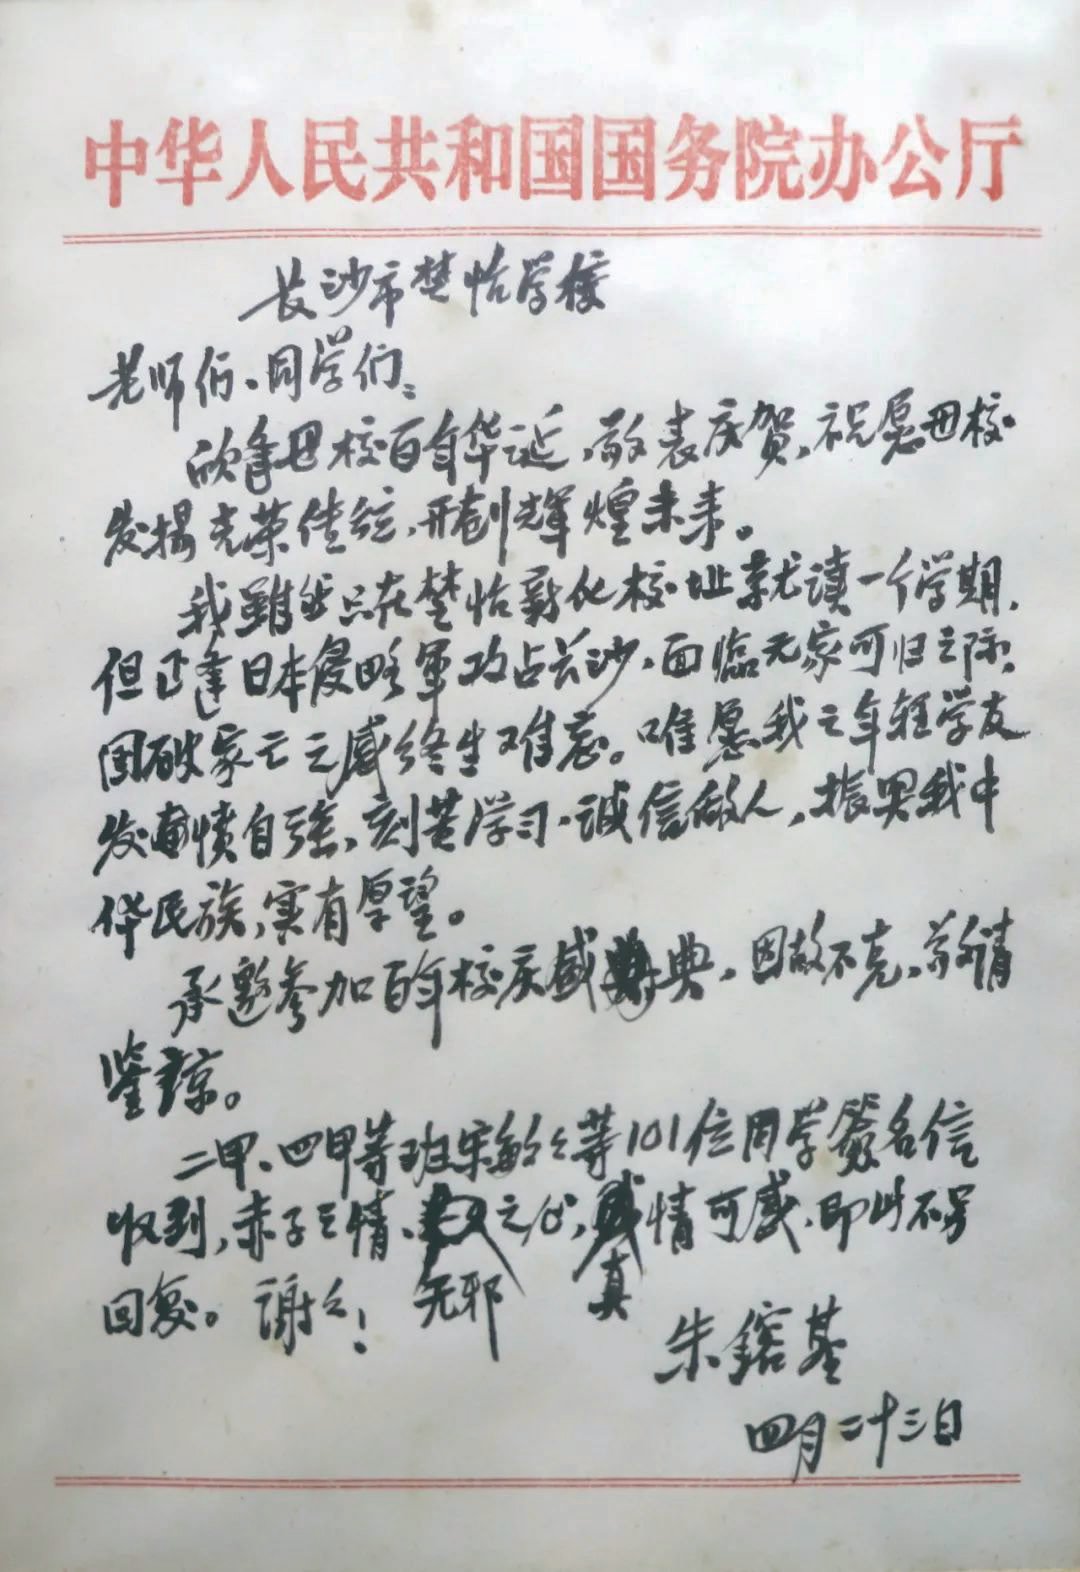 中华人民共和国国务院办公厅
长沙市楚怡学校
老师们、同学们：
欣逢母校百年华诞，敬表庆贺，祝愿母校
发扬光荣传统，开创辉煌未来。
我雖然只在楚怡新化校址就读一个学期，
但正逢日本侵略军攻占长沙，面临无家可归之际，
国破家亡之感终生难忘。唯愿我之年轻学友
发奋自强，刻苦学习，诚信做人，振兴我中
华民族，实有厚望。
承邀参加百年校庆盛典，因故不克，敬请
鉴谅。
二甲、四甲等班宋敏々等101位同学签名信
收到，赤子之情，无邪之心，真情可感，即此不另
回复。谢々！
朱鎔基
四月二十三日